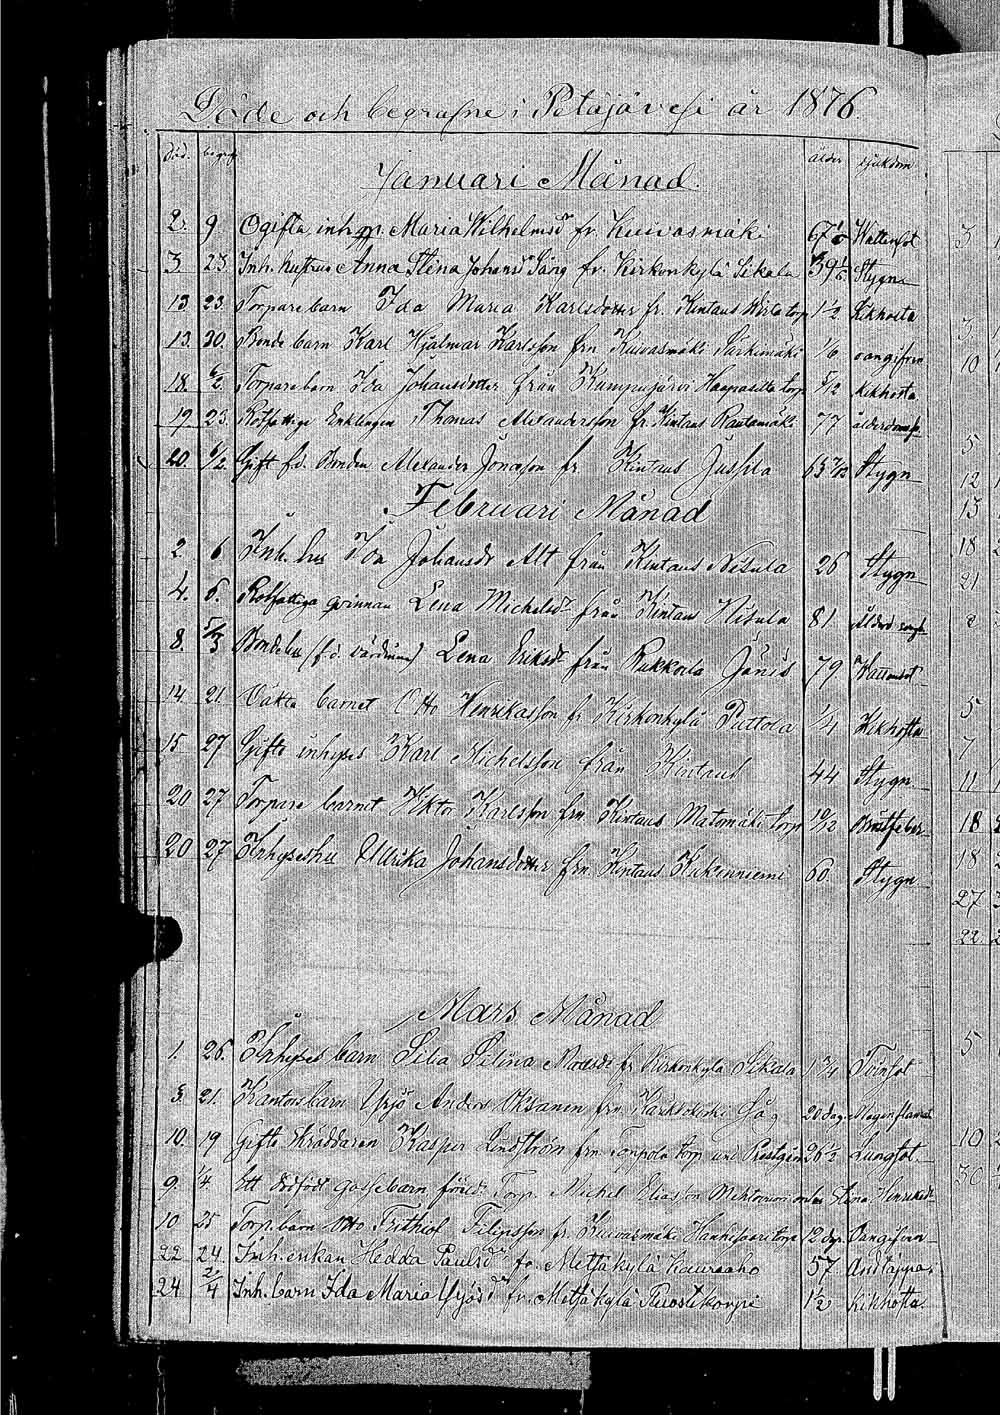 Döde och begrafne i Petäjävesi år 1876.
död. begrafn ålder sjukdom
Januari Månad.
2. 9. Ogifta inh. Maria Wilhelmsd fr. Kuivasmäki 67 Wattensot
3. 23. Inh. hustrun Anna Stina Johansd Särg fr. Kirkonkylä Sikala 39 Stygn
13. 23. Torpare barn Ida Maria Karlsdotter fr. Kintaus torp 1½ Kikhosta
13. 30. Bonde barn Karl Hjalmar Karlsson frn Kuivasmäki Särkimäki 1/6 oangifven
18. 6/2 Torpare barn Ida Johansdotter från Kumpujärvi Haapasilta torp 5/12 kikhosta
19. 23. Rotfattige Enklingen Thomas Alexandersson fr. Kintaus Rautamäki 77 ålderdoms
20. 6/2 Gift f.d. Bonden Alexander Jonasson fr Kintaus Jussila 63 7/12 Stygn
Februari Månad
2. 6. Inh. hus Ida Johansdr Alt från Kintaus Nisula 26 Stygn
4. 6. Rotfattiga qvinnan Lena Michelsdr från Kintaus Nisula 81 Ålderd
8. 5/3 Bonde (f.d. värdinna) Lena Eriksdr från Kukkola Jänis 79 Wattensot
14. 21. Oäkta barnet Otto Henriksson fr Kirkonkylä Puttola 1/4 Kikhosta
15 27 Gifte inhyses Karl Michelsson från Kintaus 44 Stygn
20 27 Torpare barnet Viktor Karlsson frn Kintaus Matomäki torp 10/12 Bröstfeber
20 27 Inhyseshu Ulrika Johansdotter frn. Kintaus Kukenniemi 60. Stygn
Mars Månad
1. 26. Inhyses barn Silia Pilina fr Kirkonkylä Sikala 1 3/4 Tvinsot
3. 21. Kantors barn Yrjö Anders Oksanen frn 20 dag. Magen
10. 19 Gifte Skräddaren Kasper Lindström frn torp und Prestgån 26½ Lungsot
9. 1/4. Ett dödfödt gossebarn föräld: Torp. Michel Eliasson och Stina Henriksdr
10 25 Torp. barn Otto Frithiof Filipsson fr. Kuivasmäki Hanhisaari torp 12 dg. Oangifven
22 24 Inh. enkan Hedda Paulsdr fr. Metsäkylä Kauraaho 57 Andtäppa
24 2/4 Inh. barn Ida Maria fr. Metsäkylä Ruostekorpi 1½ Kikhosta